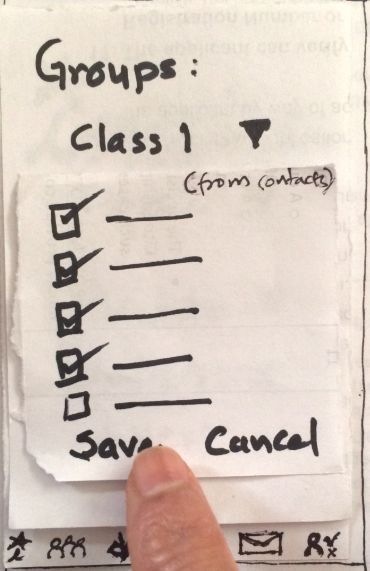 Groups:
Class 1
(from contacts)
Save Cancel